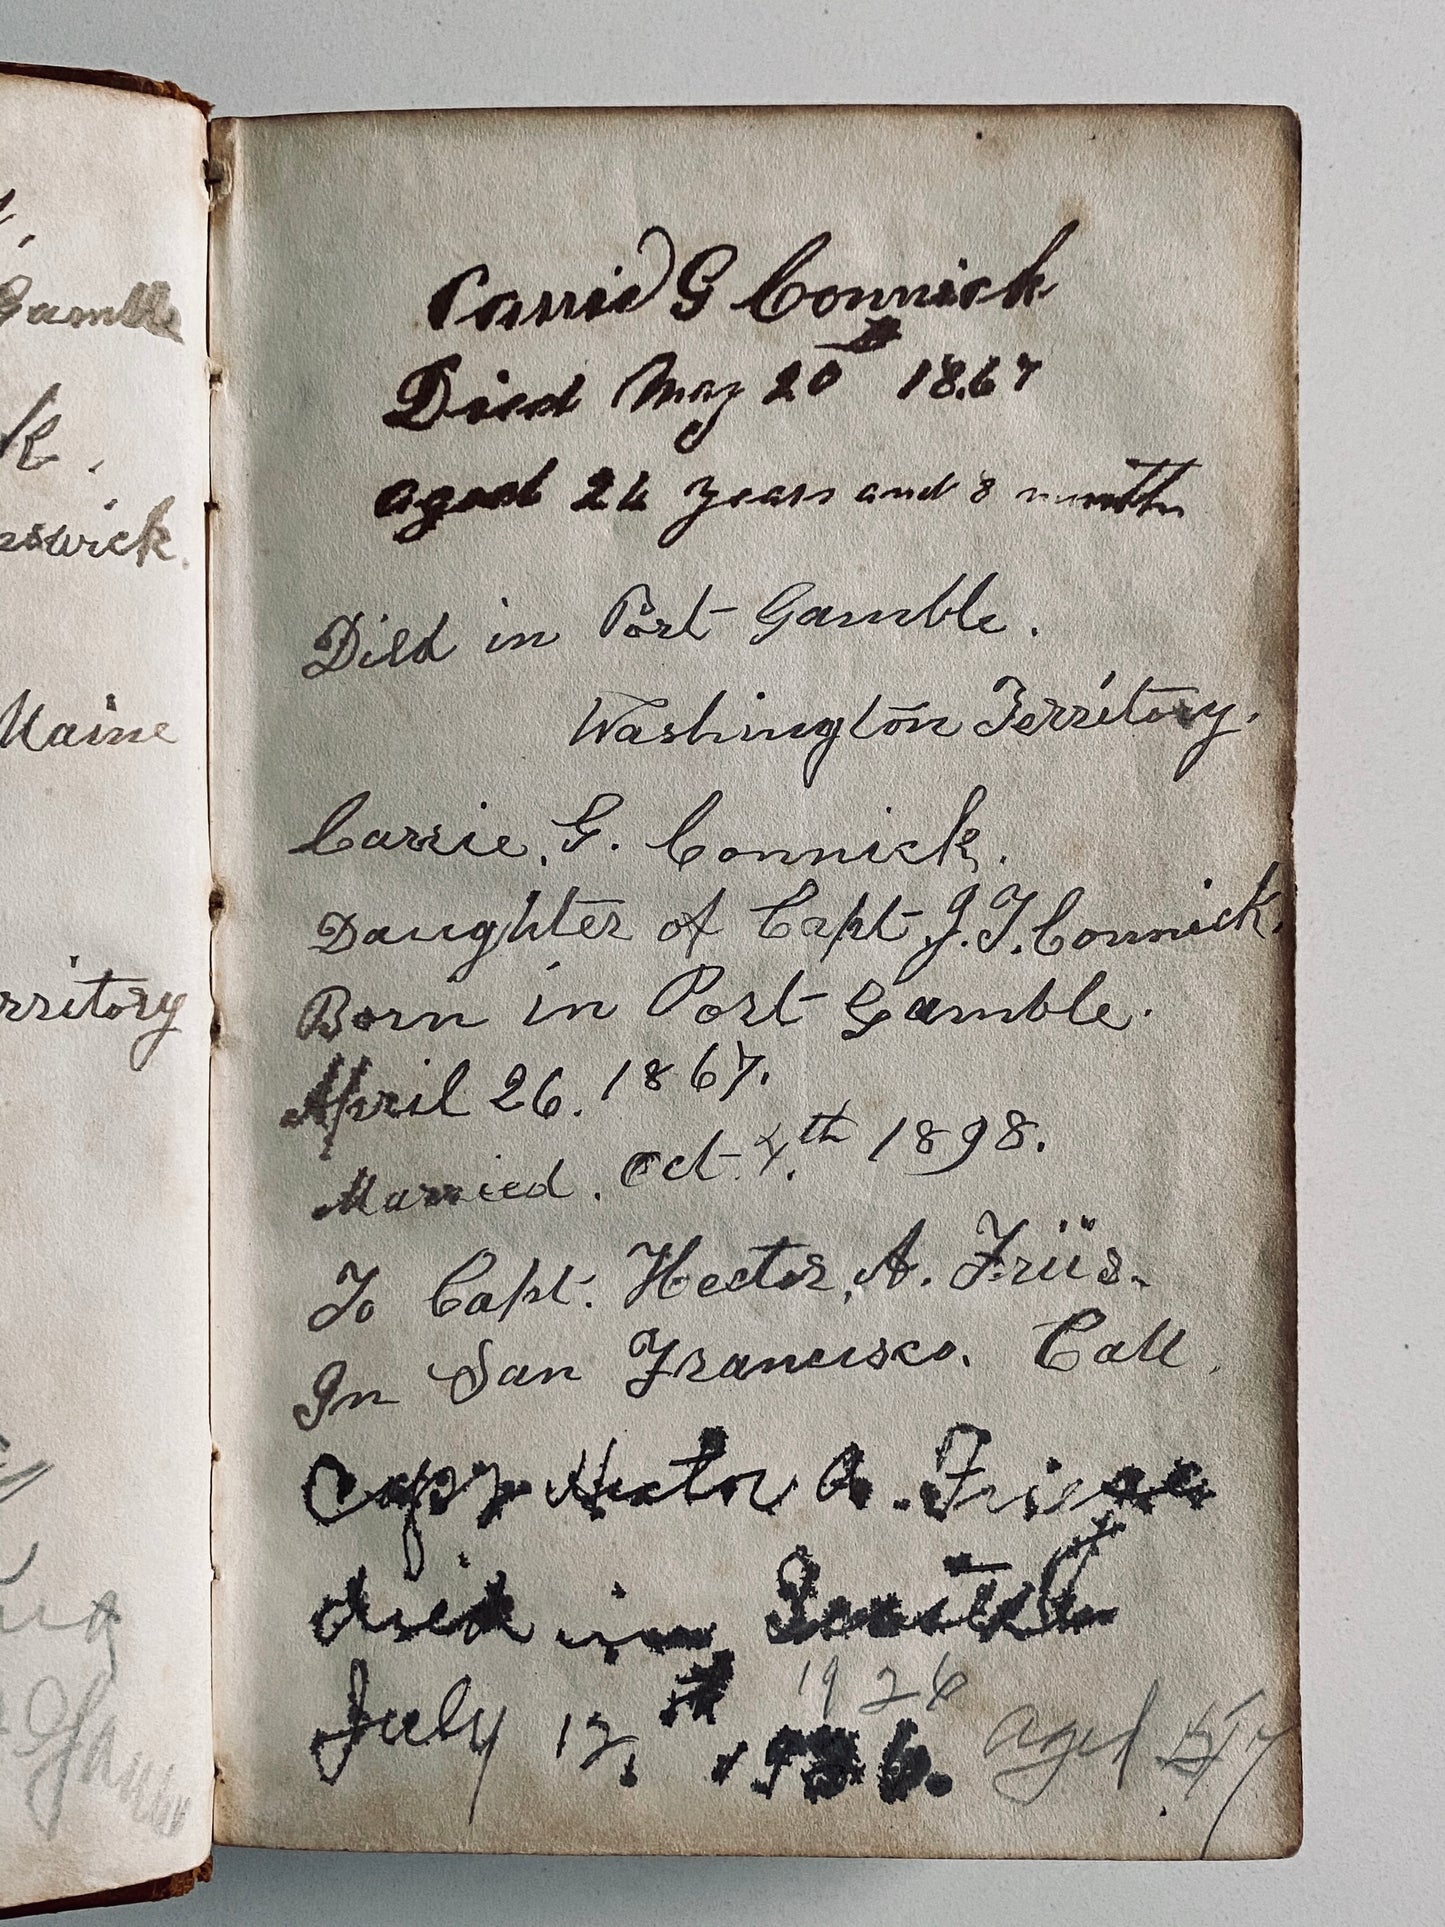 Gamble
k.
nswick.
Maine
rritory
Carrie G Connick
Died May 20th 1867
aged 26 years and 8 month
Died in Port Gamble.
Washington Territory.
Carrie. G. Connick.
Daughter of Capt J. T. Connick.
Born in Port Gamble.
April 26. 1867.
Married. Oct. 4.th 1898.
To Capt. Hector, A. Friis.
In San Francisco. Call.
Hector A.
died in Seattle
1926
July 12th 1926. aged